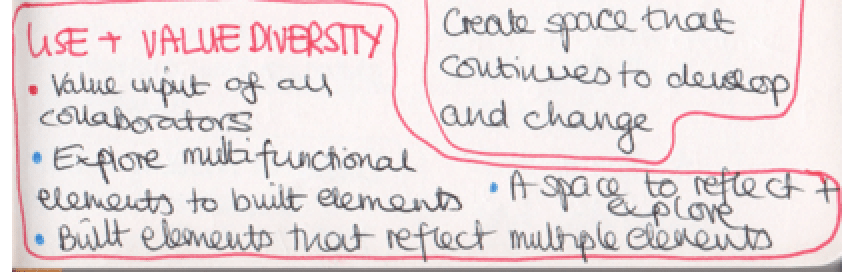 USE + VALUE DIVERSITY
• Value input of all
collaborators
• Explore multifunctional
elements to built elements
• A space to reflect +
explore
• Built elements that reflect multiple elements
Create space that
continues to develop
and change